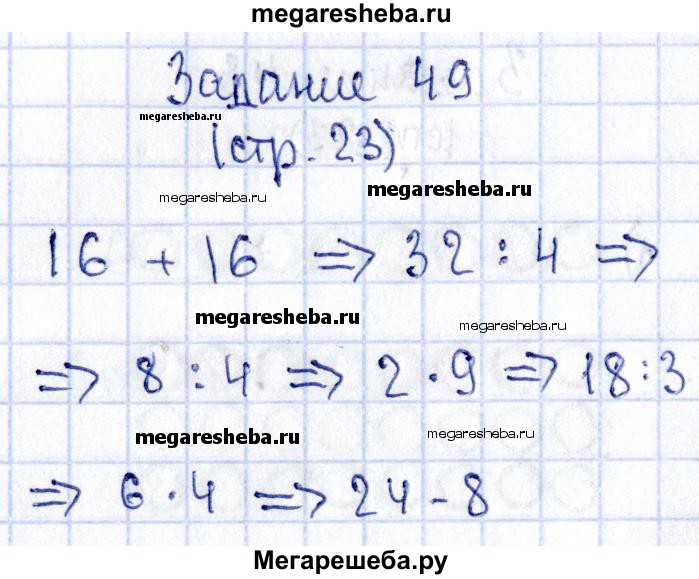 megaresheba.ru
Задание 49
megaresheba.ru
(стр. 23)
megaresheba.ru
megaresheba.ru
16 + 16 => 32 : 4 =>
megaresheba.ru
megaresheba.ru
=> 8 : 4 => 2 · 9 => 18 : 3
megaresheba.ru
megaresheba.ru
=> 6 · 4 => 24 - 8
Мегарешеба.ру